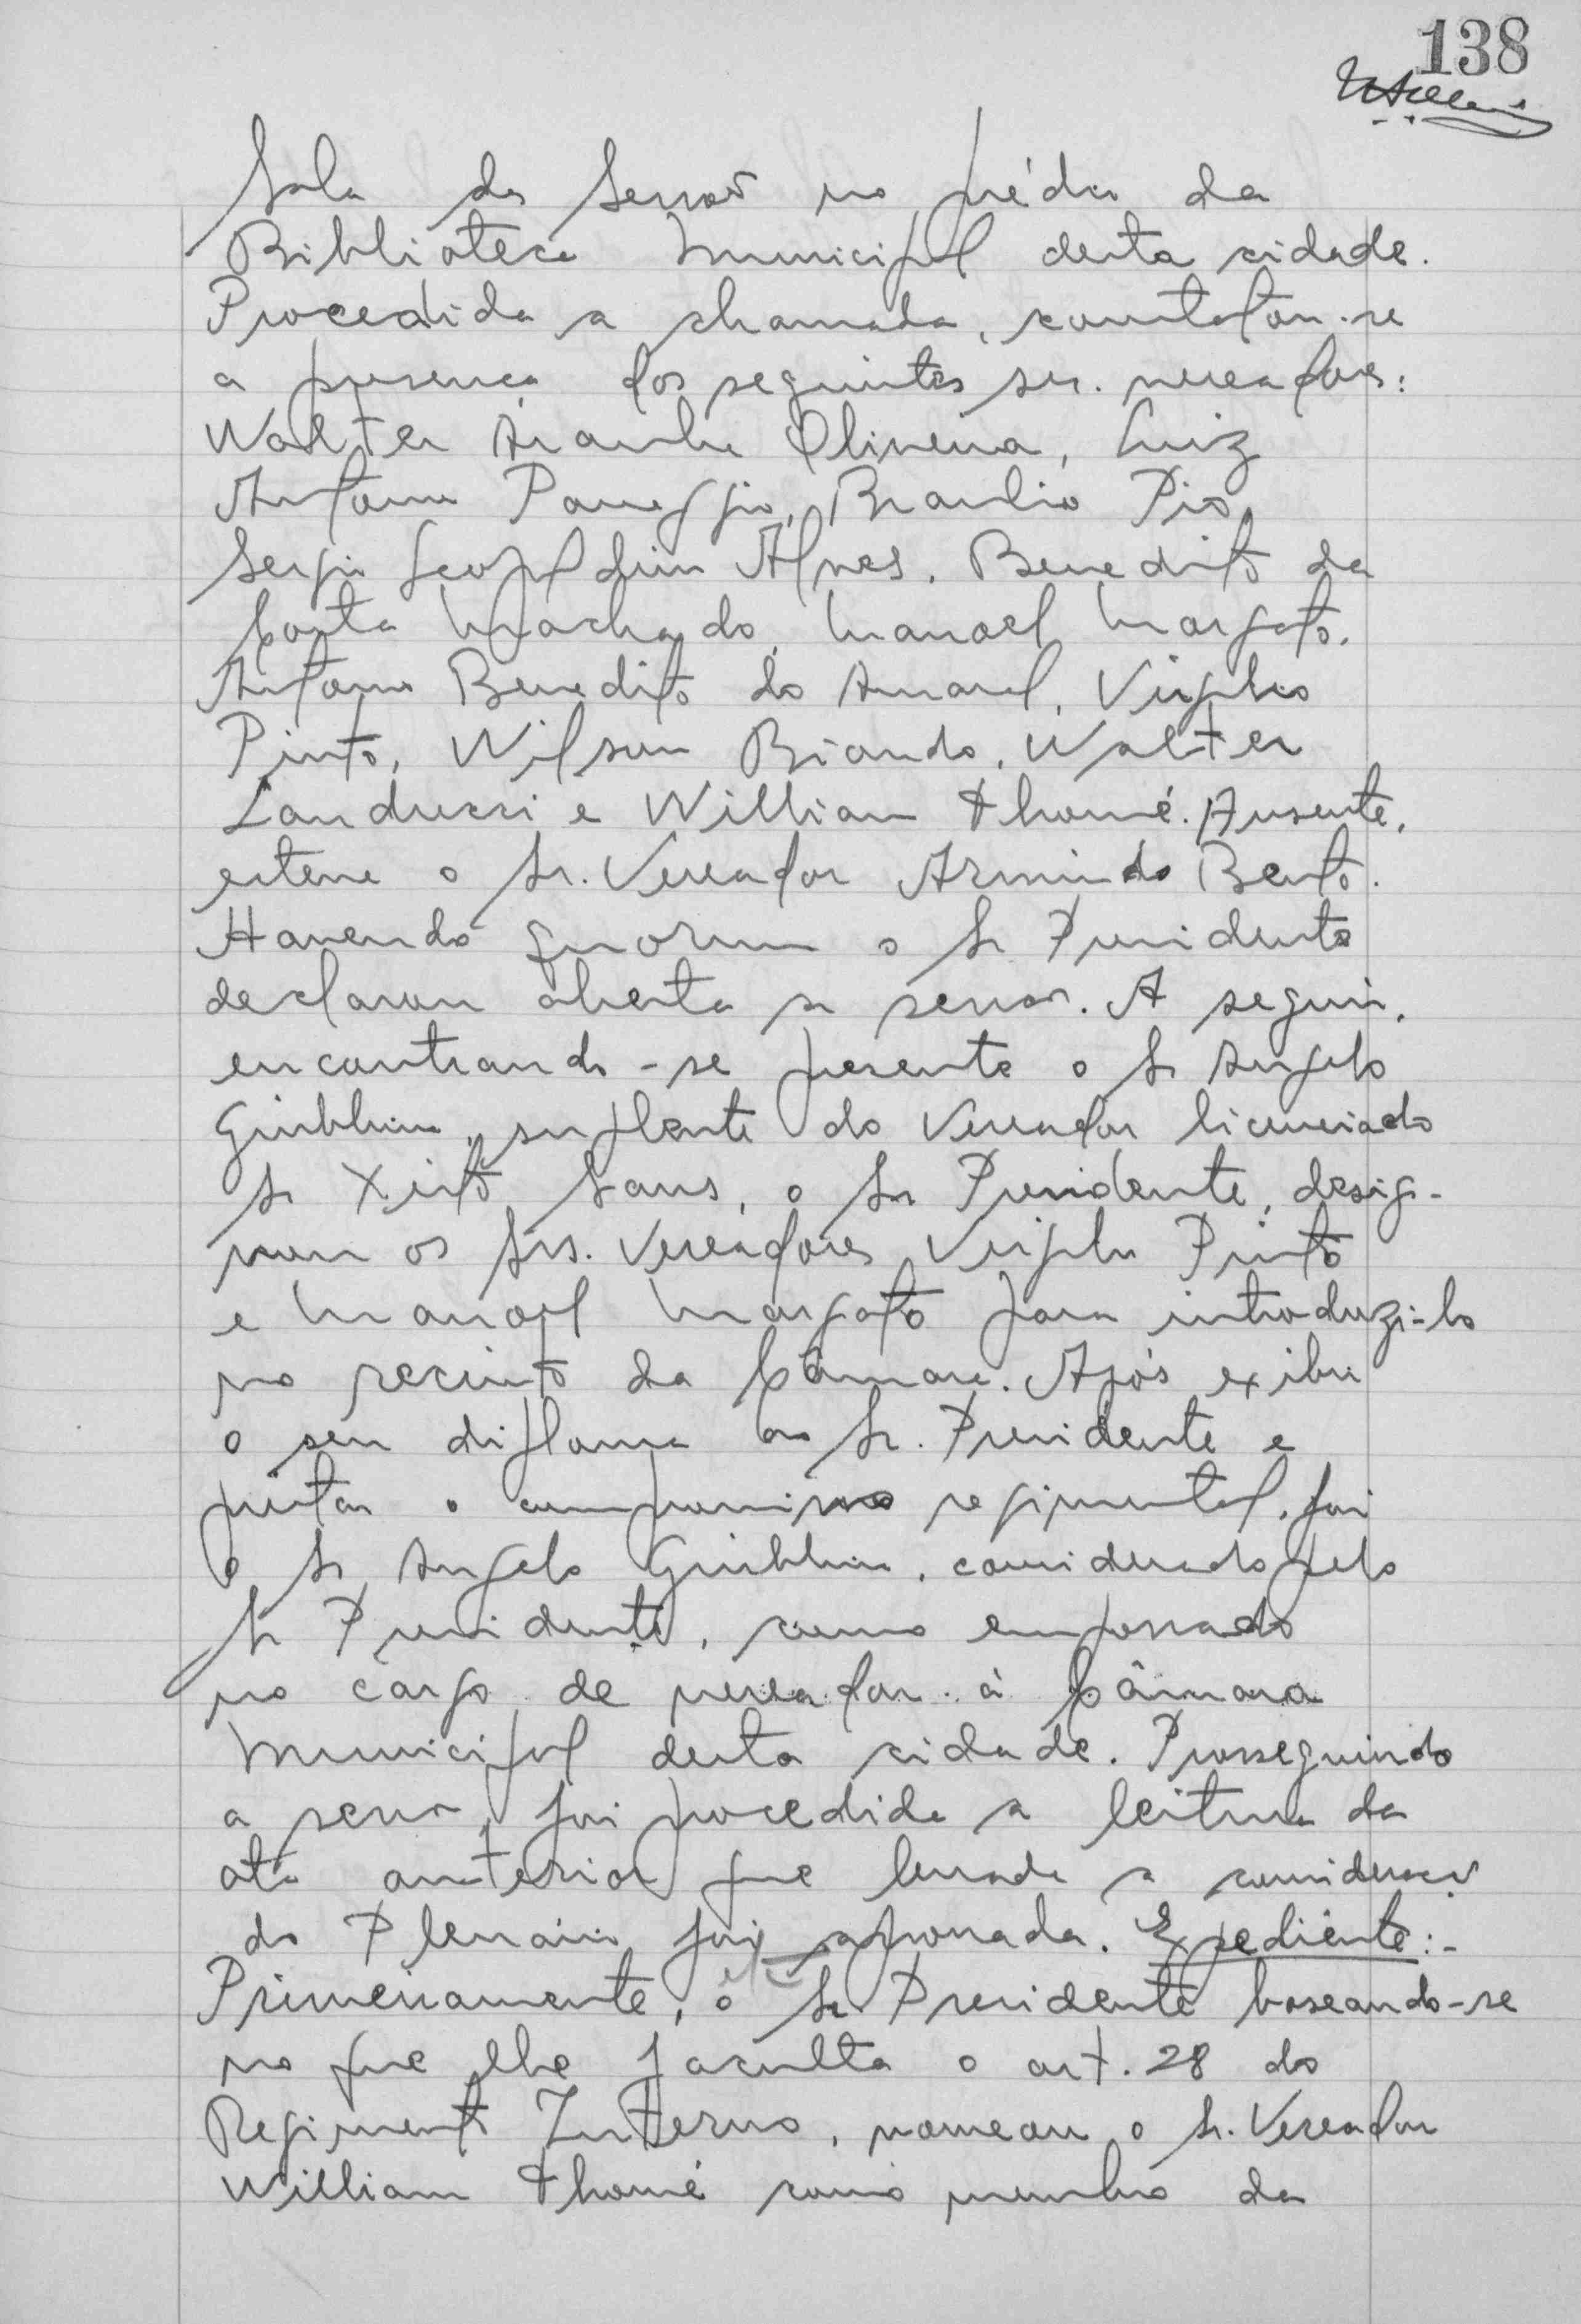 138
Sala da Sessão no prédio da
Biblioteca Municipal desta cidade.
Procedida a chamada, constatou-se
a presença dos seguintes srs. vereadores:
Walter Aranha Oliveira, Luiz
Antonio Braulio Pio,
Sergio Leopoldino Alves, Benedito da
Costa Machado, Manoel Margato,
Antonio Benedito do Amaral, Virgilio
Pinto, Wilson Biondo, Walter
Landucci e William Thomé. Ausente,
esteve o Sr. Vereador Armindo Bento.
Havendo quorum o Sr Presidente
declarou aberta a sessão. A seguir,
encontrando-se presente o Sr Angelo
suplente do Vereador licenciado
Sr Xisto Sans, o Sr Presidente, desig-
nou os Srs. Vereadores Virgilio Pinto
e Manoel Margato para introduzi-lo
no recinto da Câmara. Após exibir
o seu diploma ao Sr. Presidente e
prestar o compromisso regimental, foi
o Sr Angelo considerado pelo
Sr Presidente, como empossado
no cargo de vereador à Câmara
Municipal desta cidade. Prosseguindo
a sessão, foi procedida a leitura da
ata anterior que levada a consideração
do Plenário foi aprovada. Expediente:-
Primeiramente, o Sr. Presidente baseando-se
no que lhe faculta o art. 28 do
Regimento Interno, nomeou o Sr. Vereador
William Thomé como membro da